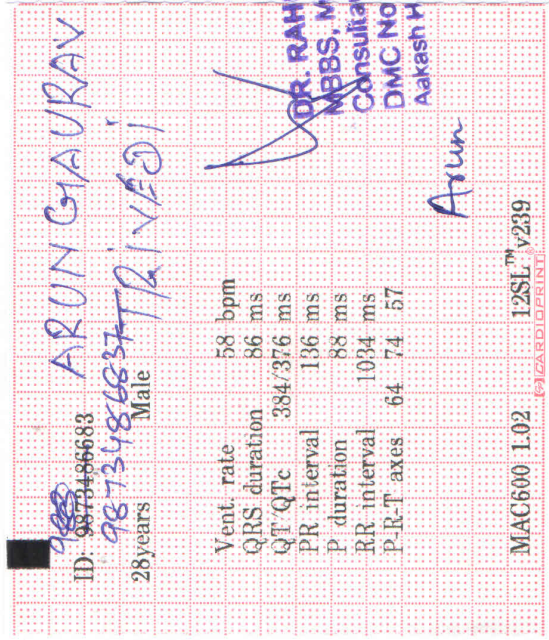 ARUN GAURAV
ID: 9873486683
9873486837 TRIVEDI
28years Male
Vent. rate 58 bpm
QRS duration 86 ms
QT/QTc 384/376 ms
PR interval 136 ms
P duration 88 ms
RR interval 1034 ms
P-R-T axes 64 74 57
DR. RAH
MBBS, M
Consulta
DMC No
Aakash H
Arun
MAC600 1.02 12SL™v239
CARDIOPRINT